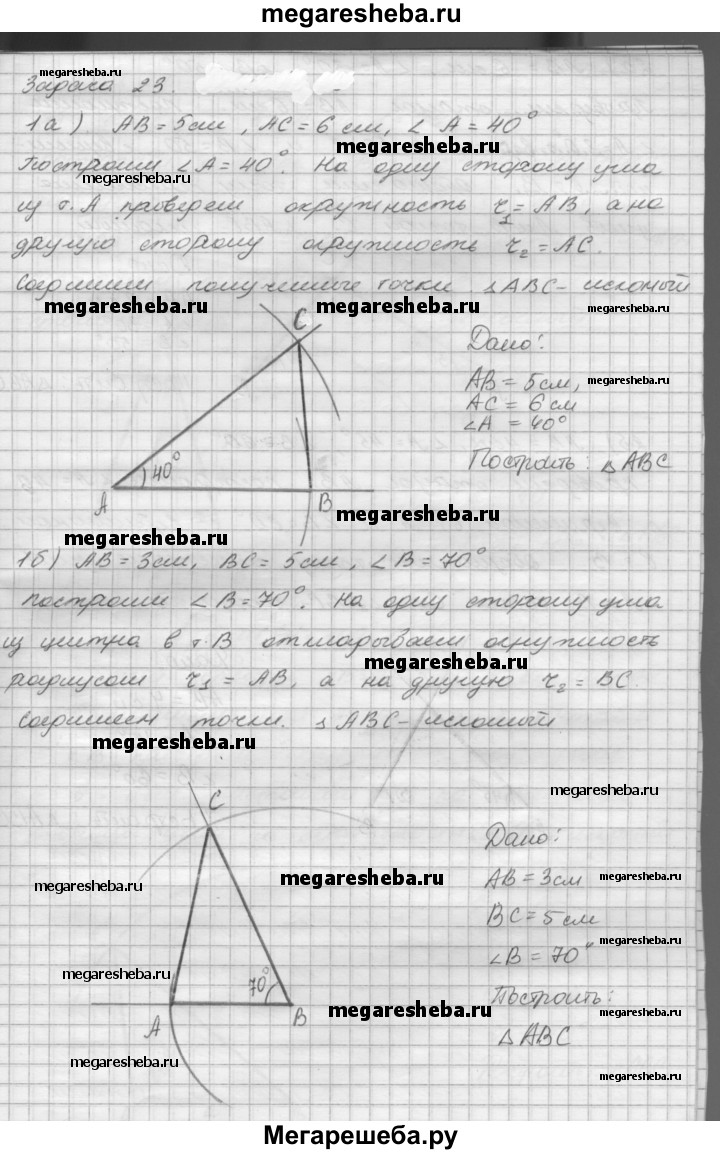 megaresheba.ru
megaresheba.ru
Задача 23.
1а) AB = 5см, AC = 6 см, ∠ A = 40°
megaresheba.ru
Построим ∠A = 40°. На одну сторону угла
megaresheba.ru
из т. A проведем окружность r₁ = AB, а на
другую сторону окружность r₂ = AC.
Соединим полученные точки △ABC - искомый
megaresheba.ru megaresheba.ru megaresheba.ru
C
Дано:
AB = 5см, megaresheba.ru
AC = 6 см
∠A = 40°
Построить: △ABC
40°
A B
megaresheba.ru
megaresheba.ru
1б) AB = 3см, BC = 5 см, ∠B = 70°
построим ∠B = 70°. На одну сторону угла
из центра в т. B откладываем окружность
megaresheba.ru
радиусом r₁ = AB, а на другую r₂ = BC.
Соединяем точки. △ABC - искомый
megaresheba.ru
megaresheba.ru
C
Дано:
megaresheba.ru megaresheba.ru AB = 3см megaresheba.ru
BC = 5см
megaresheba.ru
∠B = 70°
megaresheba.ru
70°
Построить:
A B megaresheba.ru megaresheba.ru
△ABC
megaresheba.ru megaresheba.ru
Мегарешеба.ру